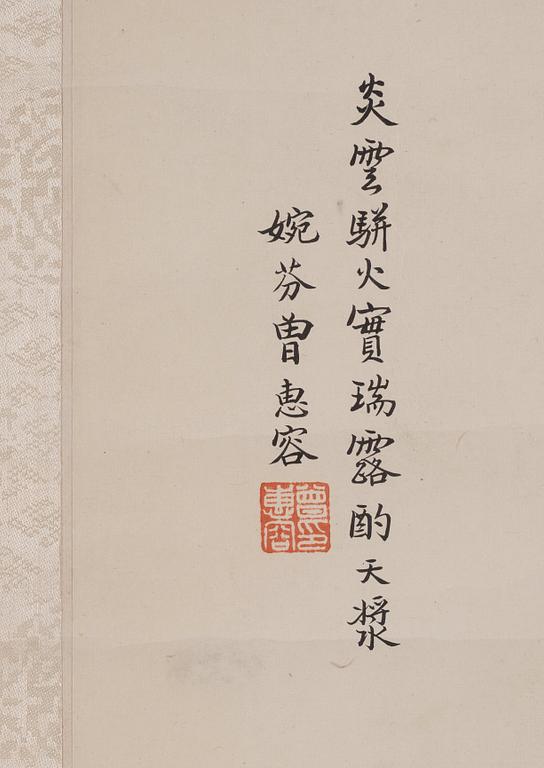 炎雲駢火實瑞露酌天漿
婉芬曾惠容
曾惠容印